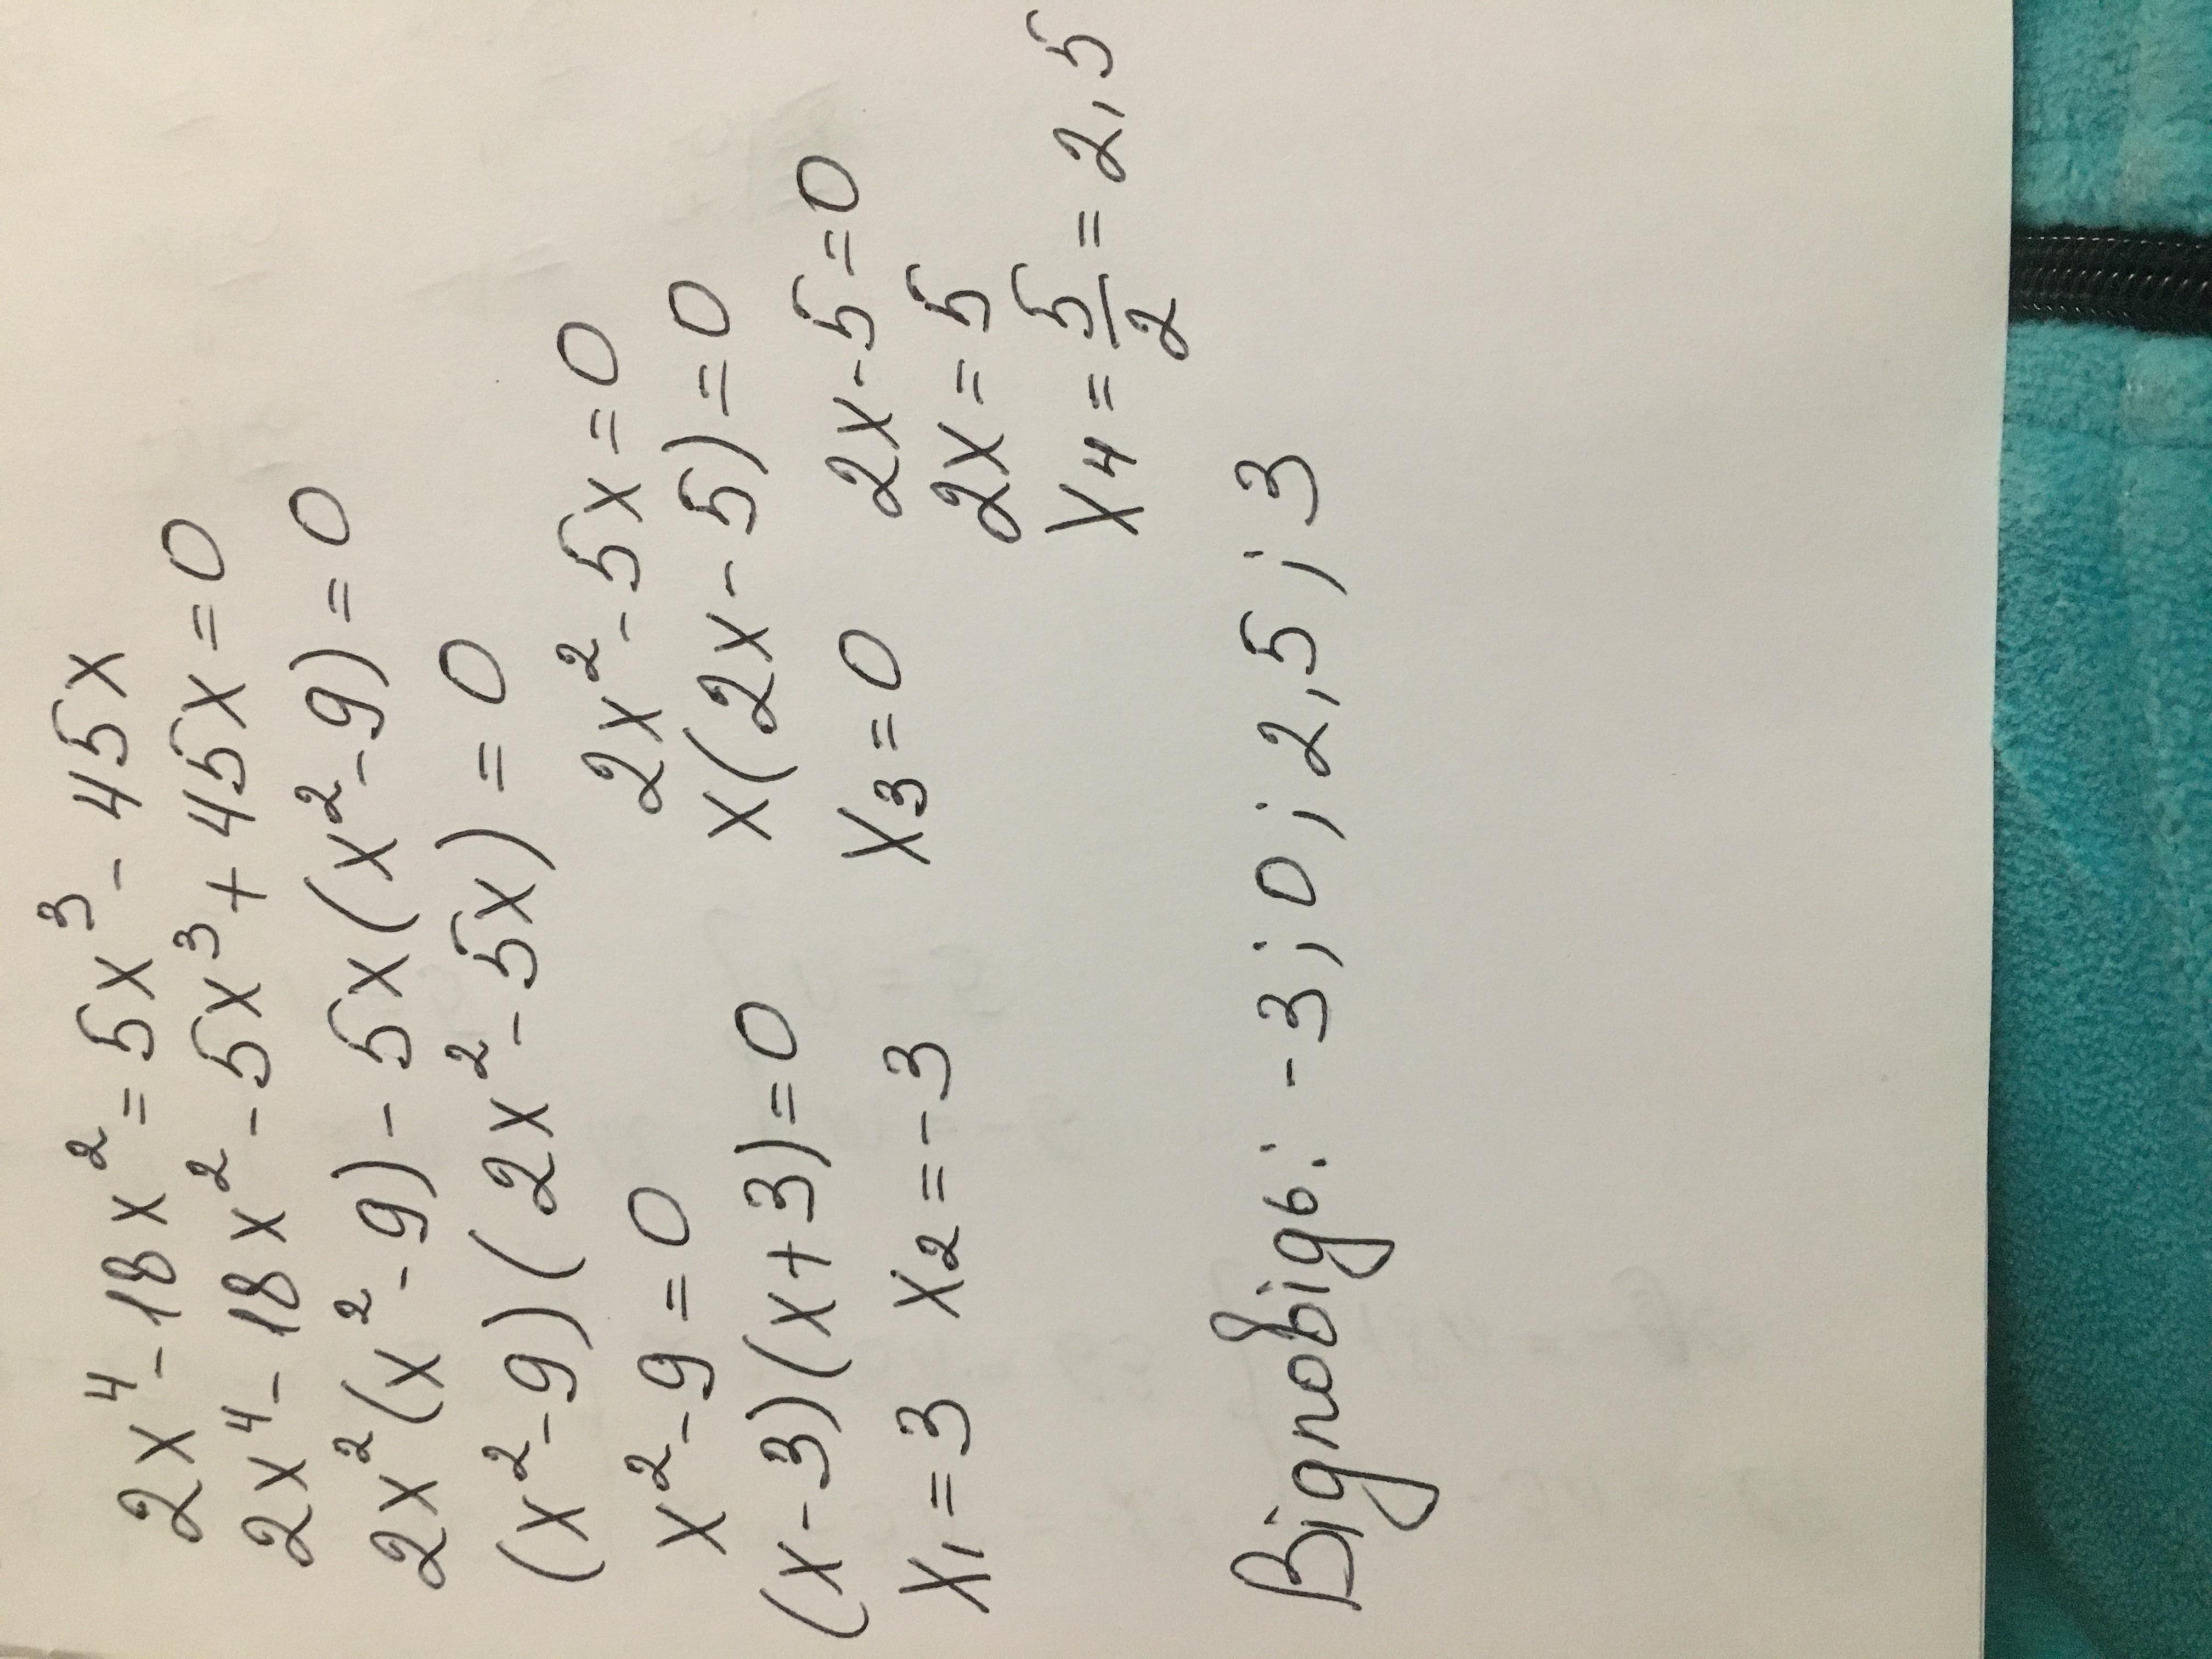 2x⁴-18x²=5x³-45x
2x⁴-18x²-5x³+45x=0
2x²(x²-9)-5x(x²-9)=0
(x²-9)(2x²-5x)=0
x²-9=0 2x²-5x=0
(x-3)(x+3)=0 x(2x-5)=0
x₁=3 x₂=-3 x₃=0 2x-5=0
2x=5
x₄=5/2=2,5
Відповідь: -3; 0; 2,5; 3